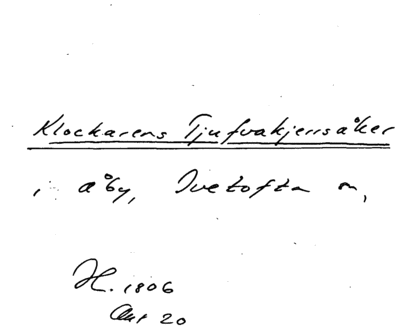 Klockarens Tjufvakjersåker
i Åby, Ivetofta sn,
H. 1806
Akt 20